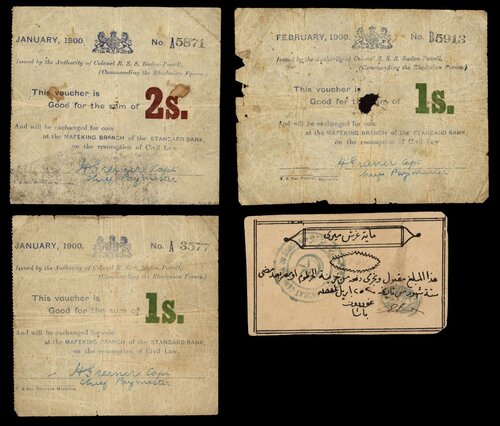 JANUARY, 1900.
No. A5871
Issued by the Authority of Colonel R. S. S. Baden-Powell,
(Commanding the Rhodesian Forces.)
This voucher is
Good for the sum of
2s.
And will be exchanged for coin
at the MAFEKING BRANCH of the STANDARD BANK,
on the resumption of Civil Law.
H Greener Capt
Chief Paymaster
FEBRUARY, 1900.
No. B5913
Issued by the Authority of Colonel R. S. S. Baden-Powell,
(Commanding the Rhodesian Forces.)
This voucher is
Good for the sum of
1s.
And will be exchanged for coin
at the MAFEKING BRANCH of the STANDARD BANK,
on the resumption of Civil Law.
H Greener Capt
Chief Paymaster
JANUARY, 1900.
No. A 3577
Issued by the Authority of Colonel R. S. S. Baden-Powell,
(Commanding the Rhodesian Forces.)
This voucher is
Good for the sum of
1s.
And will be exchanged for coin
at the MAFEKING BRANCH of the STANDARD BANK,
on the resumption of Civil Law.
H Greener Capt
Chief Paymaster
ماية غرش ميرى
هذا المبلغ مقبول
باشا